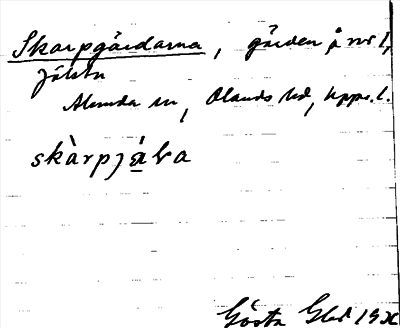 Skarpgårdarna, gården å nr 1,
Jökta
Alunda sn, Olands hd, Upps. l.
skàrpjá̱ɫa
Gösta